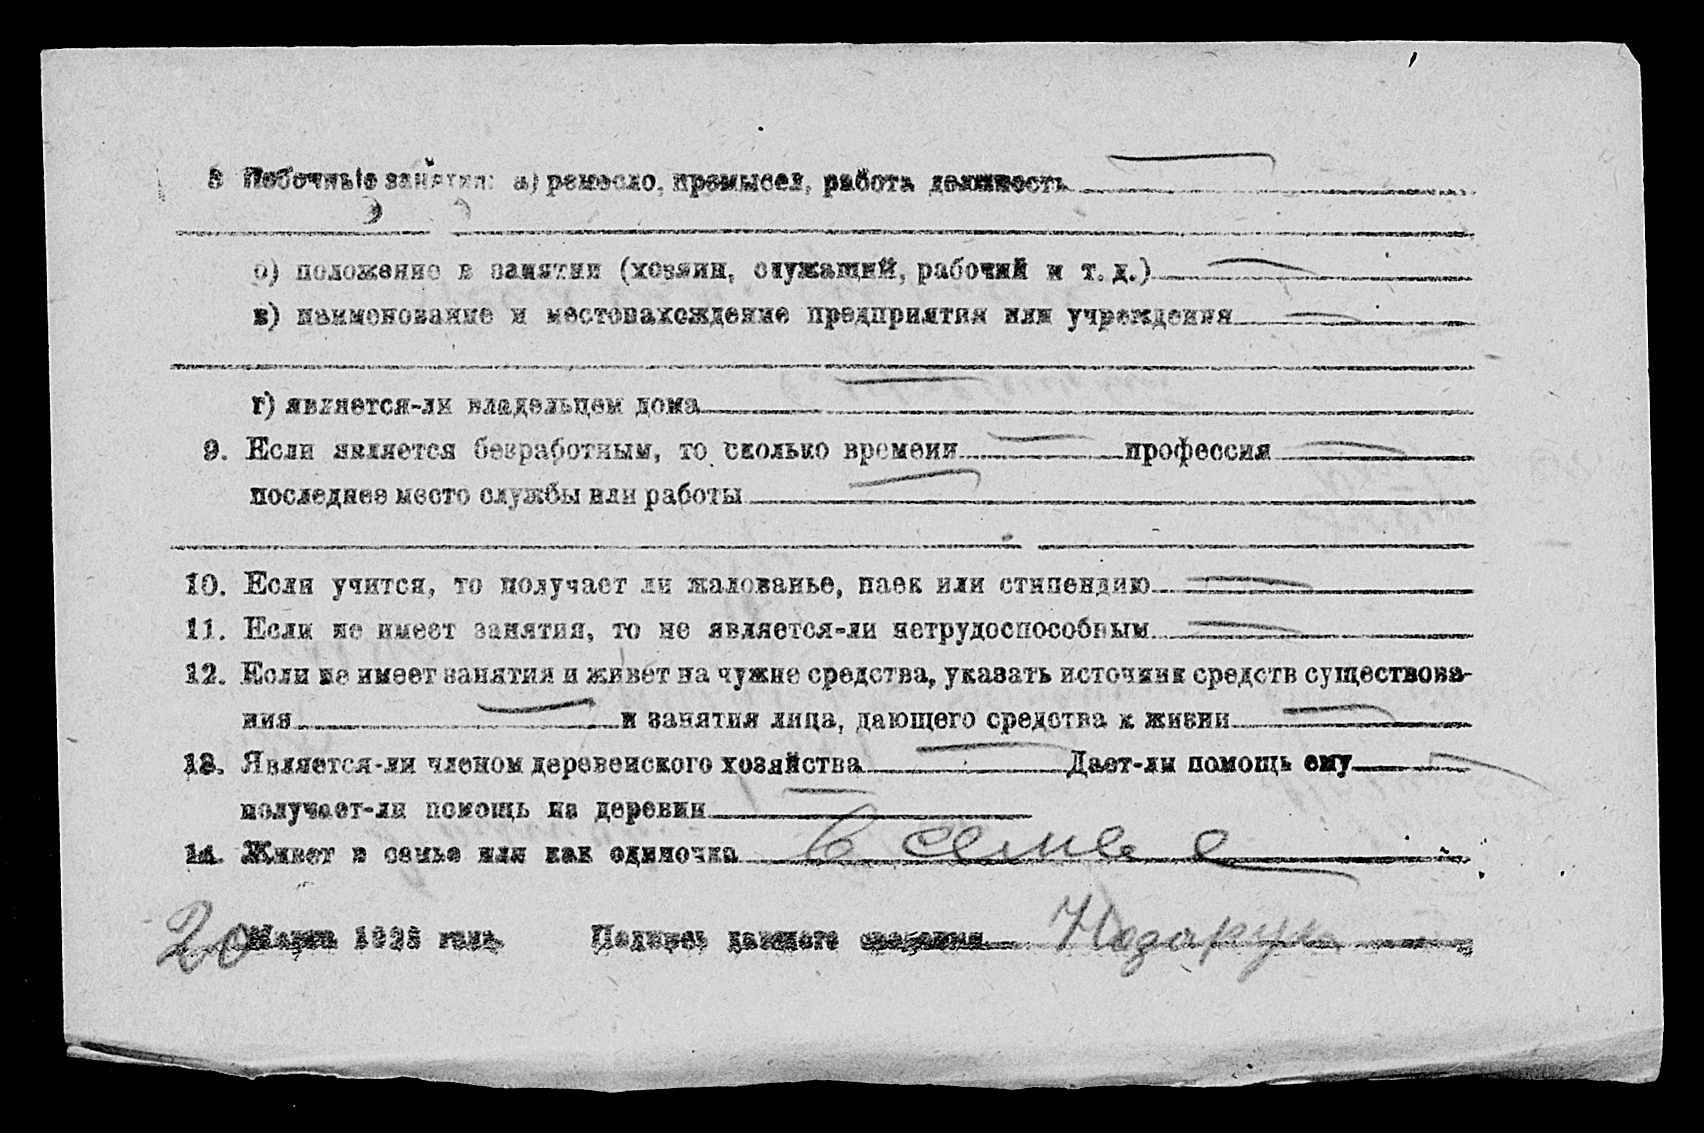 8 Побочные занятия: а) ремесло, промысел, работа должность
б) положение в занятии (хозяин, служащий, рабочий и т. д.)
в) наименование и местонахождение предприятия или учреждения
г) является-ли владельцем дома
9. Если является безработным, то сколько времени профессия
последнее место службы или работы
10. Если учится, то получает ли жалованье, паек или стипендию
11. Если не имеет занятия, то не является-ли нетрудоспособным
12. Если не имеет занятия и живет на чужие средства, указать источник средств существова-
ния и занятия лица, дающего средства к жизни
13. Является-ли членом деревенского хозяйства Дает-ли помощь ему
получает-ли помощь из деревни
14. Живет в семье или как одиночка в семье
20 Марта 1923 года Подпись давшего сведения